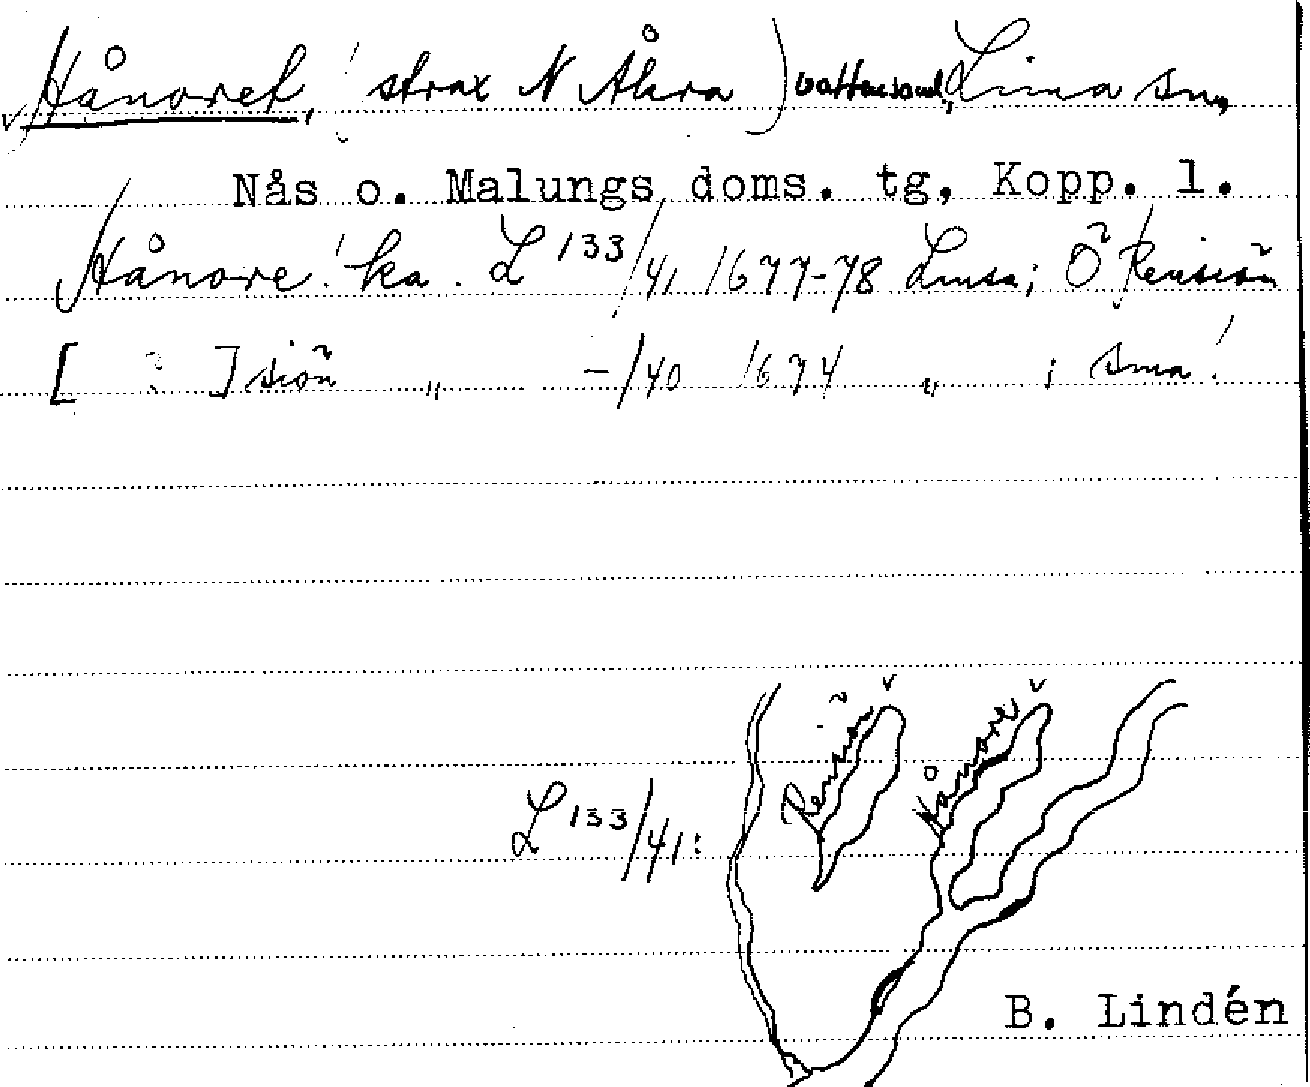 Hånoret, ! strax N Åkra ) vattensaml, Lima sn,
Nås o. Malungs doms. tg, Kopp. l.
Hånore ! ka. L 133/41 1677-78 Lima; Ö Rensiön
[ : ] siön „ -/40 1674 „ ; sma!
Rensiön
Hånore
L 133/41:
B. Lindén